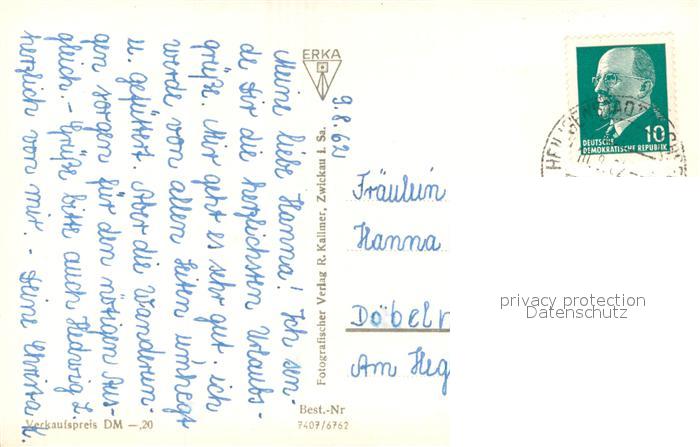 Meine liebe Hanna! Ich sen-
de Dir die herzlichsten Urlaubs-
grüße. Mir geht es sehr gut, ich
werde von allen Seiten umhegt
u. gefüttert. Aber die Wanderun-
gen sorgen für den nötigen Aus-
gleich. - Grüße bitte auch Hedwig L.
herzlich von mir. - Deine Christa K.
ERKA
Fotografischer Verlag R. Kallmer, Zwickau i. Sa.
9.8.62
10
DEUTSCHE
DEMOKRATISCHE REPUBLIK
Fräulein
Hanna
Döbeln
Am Heg
privacy protection
Datenschutz
Best.-Nr
7407/6762
Verkaufspreis DM —,20